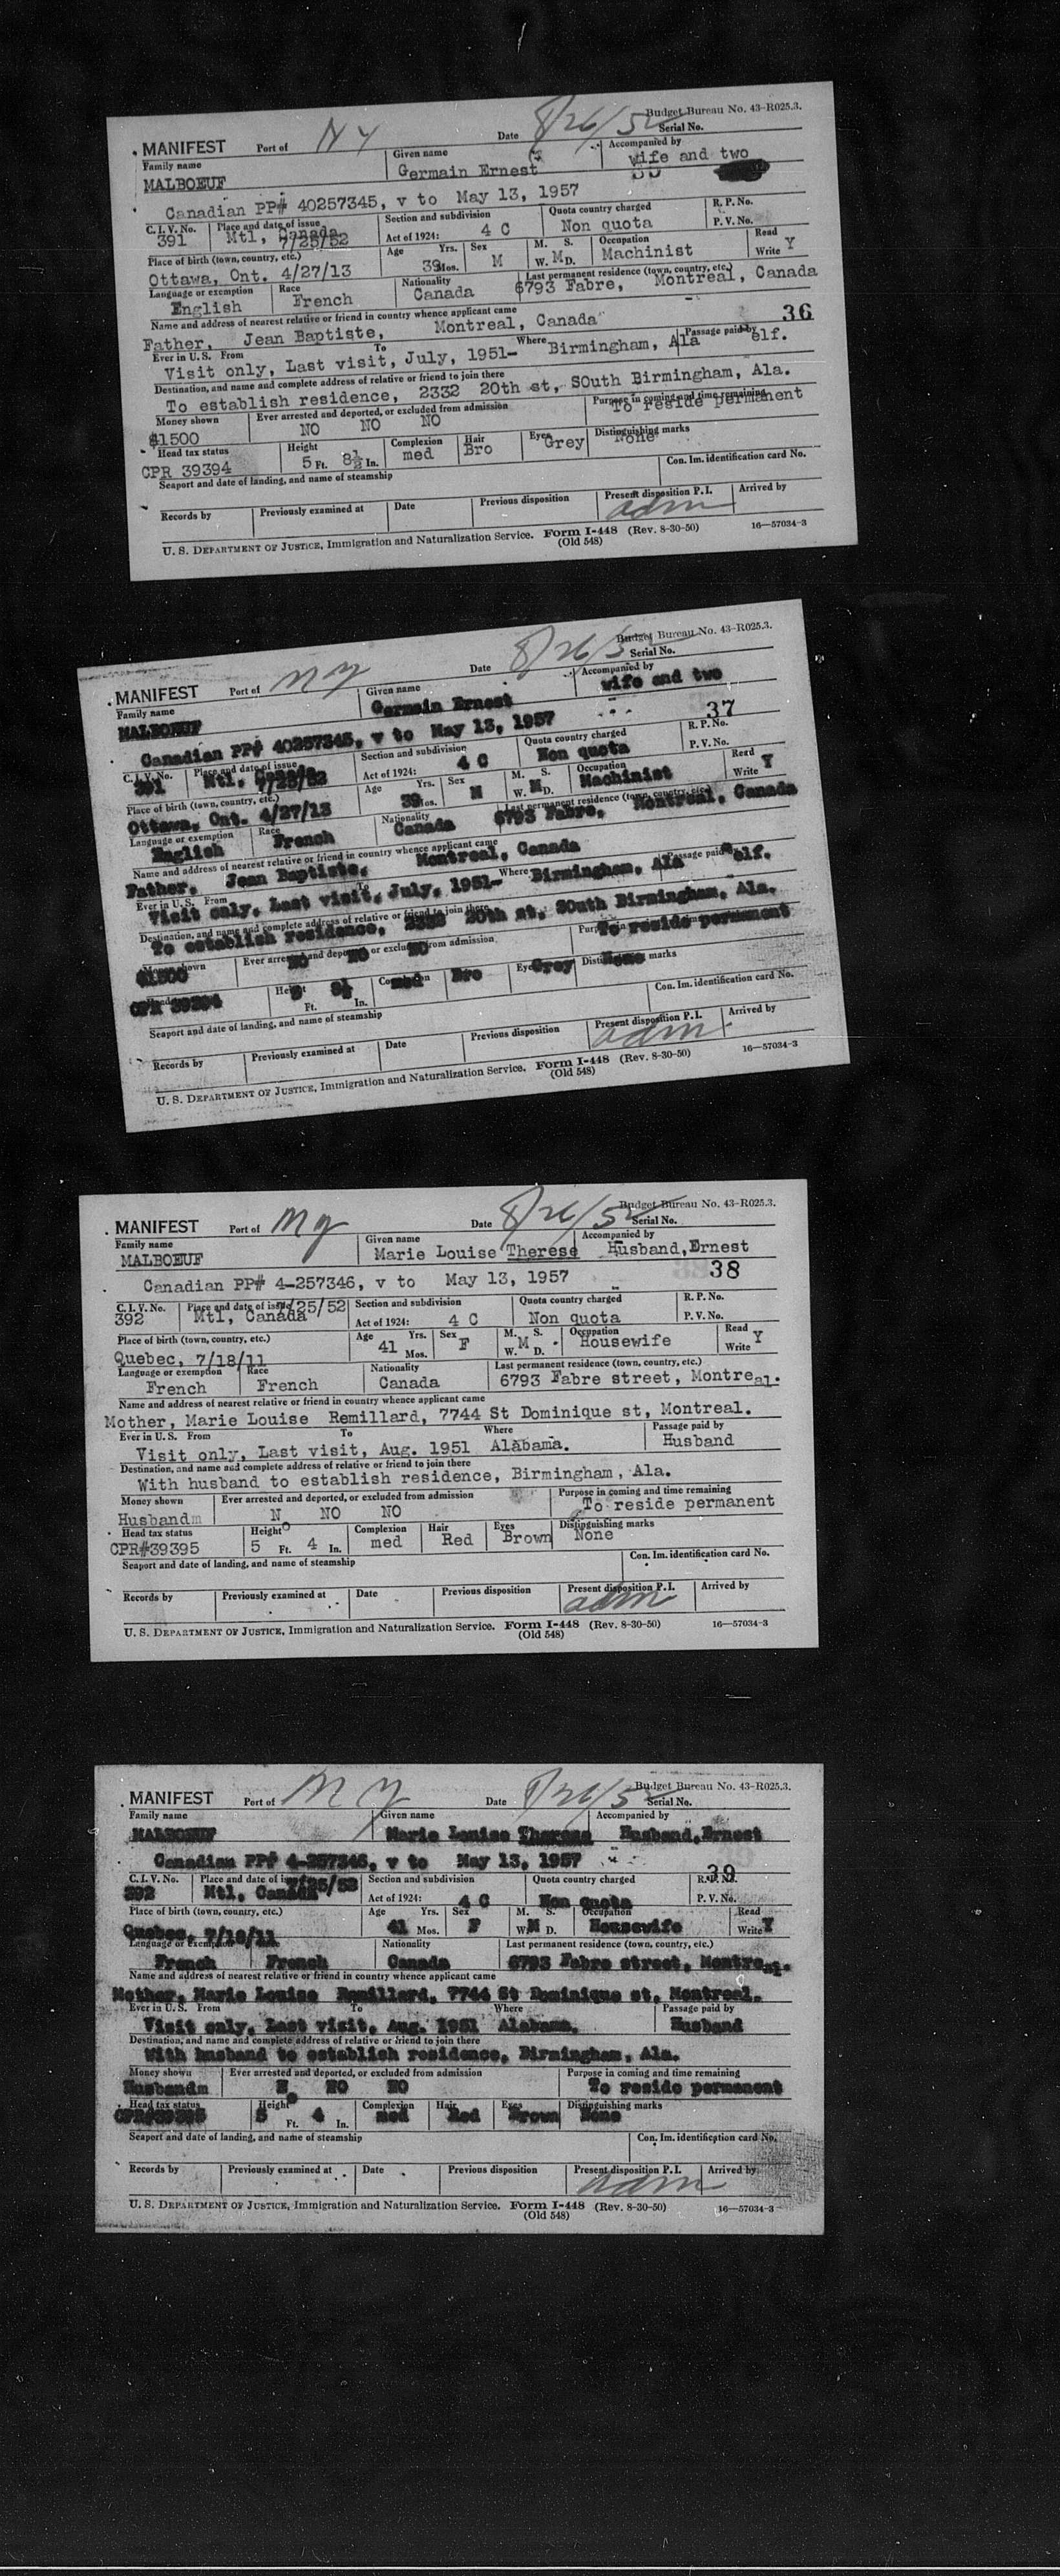 Budget Bureau No. 43-R025.3.
MANIFEST Port of N Y Date 8/26/52 Serial No.
Family name Given name Accompanied by
MALBOEUF Germain Ernest wife and two
Canadian PP# 40257345, v to May 13, 1957
C. I. V. No. Place and date of issue Section and subdivision Quota country charged R. P. No.
391 Mtl, Canada 7/25/52 Act of 1924: 4 C Non quota P. V. No.
Place of birth (town, country, etc.) Age Yrs. Sex M. S. Occupation Read
Ottawa, Ont. 4/27/13 39 Mos. M W. M D. Machinist Write Y
Language or exemption Race Nationality Last permanent residence (town, country, etc.)
English French Canada 6793 Fabre, Montreal, Canada
Name and address of nearest relative or friend in country whence applicant came 36
Father, Jean Baptiste, Montreal, Canada
Ever in U.S. From To Where Passage paid by
Visit only, Last visit, July, 1951- Birmingham, Ala elf.
Destination, and name and complete address of relative or friend to join there
To establish residence, 2332 20th st, SOuth Birmingham, Ala.
Money shown Ever arrested and deported, or excluded from admission Purpose in coming and time remaining
$1500 NO NO NO To reside permanent
Head tax status Height Complexion Hair Eyes Distinguishing marks
CPR 39394 5 Ft. 8½ In. med Bro Grey None
Seaport and date of landing, and name of steamship Con. Im. identification card No.
Records by Previously examined at Date Previous disposition Present disposition P. I. Arrived by
adm
U. S. DEPARTMENT OF JUSTICE, Immigration and Naturalization Service. Form I-448 (Rev. 8-30-50) 16—57034-3
(Old 548)
Budget Bureau No. 43-R025.3.
MANIFEST Port of N Y Date 8/26/52 Serial No.
Family name Given name Accompanied by
MALBOEUF Germain Ernest wife and two
Canadian PP# 40257345, v to May 13, 1957 37
C. I. V. No. Place and date of issue Section and subdivision Quota country charged R. P. No.
391 Mtl, Canada 7/25/52 Act of 1924: 4 C Non quota P. V. No.
Place of birth (town, country, etc.) Age Yrs. Sex M. S. Occupation Read
Ottawa, Ont. 4/27/13 39 Mos. M W. M D. Machinist Write Y
Language or exemption Race Nationality Last permanent residence (town, country, etc.)
English French Canada 6793 Fabre, Montreal, Canada
Name and address of nearest relative or friend in country whence applicant came
Father, Jean Baptiste, Montreal, Canada
Ever in U.S. From To Where Passage paid by
Visit only, Last visit, July, 1951- Birmingham, Ala elf.
Destination, and name and complete address of relative or friend to join there
To establish residence, 2332 20th st, SOuth Birmingham, Ala.
Money shown Ever arrested and deported, or excluded from admission Purpose in
$1500 NO NO NO To reside permanent
Height Complexion Eyes Distinguishing marks
CPR 39394 5 Ft. 8½ In. med Bro Grey None
Seaport and date of landing, and name of steamship Con. Im. identification card No.
Records by Previously examined at Date Previous disposition Present disposition P. I. Arrived by
adm
U. S. DEPARTMENT OF JUSTICE, Immigration and Naturalization Service. Form I-448 (Rev. 8-30-50) 16—57034-3
(Old 548)
Budget Bureau No. 43-R025.3.
MANIFEST Port of N Y Date 8/26/52 Serial No.
Family name Given name Accompanied by
MALBOEUF Marie Louise Therese Husband, Ernest
Canadian PP# 4-257346, v to May 13, 1957 38
C. I. V. No. Place and date of issue Section and subdivision Quota country charged R. P. No.
392 Mtl, Canada 7/25/52 Act of 1924: 4 C Non quota P. V. No.
Place of birth (town, country, etc.) Age Yrs. Sex M. S. Occupation Read
Quebec, 7/18/11 41 Mos. F W. M D. Housewife Write Y
Language or exemption Race Nationality Last permanent residence (town, country, etc.)
French French Canada 6793 Fabre street, Montreal.
Name and address of nearest relative or friend in country whence applicant came
Mother, Marie Louise Remillard, 7744 St Dominique st, Montreal.
Ever in U.S. From To Where Passage paid by
Visit only, Last visit, Aug. 1951 Alabama. Husband
Destination, and name and complete address of relative or friend to join there
With husband to establish residence, Birmingham, Ala.
Money shown Ever arrested and deported, or excluded from admission Purpose in coming and time remaining
Husbandm NO NO NO To reside permanent
Head tax status Height Complexion Hair Eyes Distinguishing marks
CPR#39395 5 Ft. 4 In. med Red Brown None
Seaport and date of landing, and name of steamship Con. Im. identification card No.
Records by Previously examined at Date Previous disposition Present disposition P. I. Arrived by
adm
U. S. DEPARTMENT OF JUSTICE, Immigration and Naturalization Service. Form I-448 (Rev. 8-30-50) 16—57034-3
(Old 548)
Budget Bureau No. 43-R025.3.
MANIFEST Port of N Y Date 8/26/52 Serial No.
Family name Given name Accompanied by
MALBOEUF Marie Louise Therese Husband, Ernest
Canadian PP# 4-257346, v to May 13, 1957 39
C. I. V. No. Place and date of issue Section and subdivision Quota country charged R. P. No.
392 Mtl, Canada 7/25/52 Act of 1924: 4 C Non quota P. V. No.
Place of birth (town, country, etc.) Age Yrs. Sex M. S. Occupation Read
Quebec, 7/18/11 41 Mos. F W. M D. Housewife Write Y
Language or exemption Race Nationality Last permanent residence (town, country, etc.)
French French Canada 6793 Fabre street, Montreal.
Name and address of nearest relative or friend in country whence applicant came
Mother, Marie Louise Remillard, 7744 St Dominique st, Montreal.
Ever in U.S. From To Where Passage paid by
Visit only, Last visit, Aug. 1951 Alabama. Husband
Destination, and name and complete address of relative or friend to join there
With husband to establish residence, Birmingham, Ala.
Money shown Ever arrested and deported, or excluded from admission Purpose in coming and time remaining
Husbandm NO NO NO To reside permanent
Head tax status Height Complexion Hair Eyes Distinguishing marks
CPR#39395 5 Ft. 4 In. med Red Brown None
Seaport and date of landing, and name of steamship Con. Im. identification card No.
Records by Previously examined at Date Previous disposition Present disposition P. I. Arrived by
adm
U. S. DEPARTMENT OF JUSTICE, Immigration and Naturalization Service. Form I-448 (Rev. 8-30-50) 16—57034-3
(Old 548)